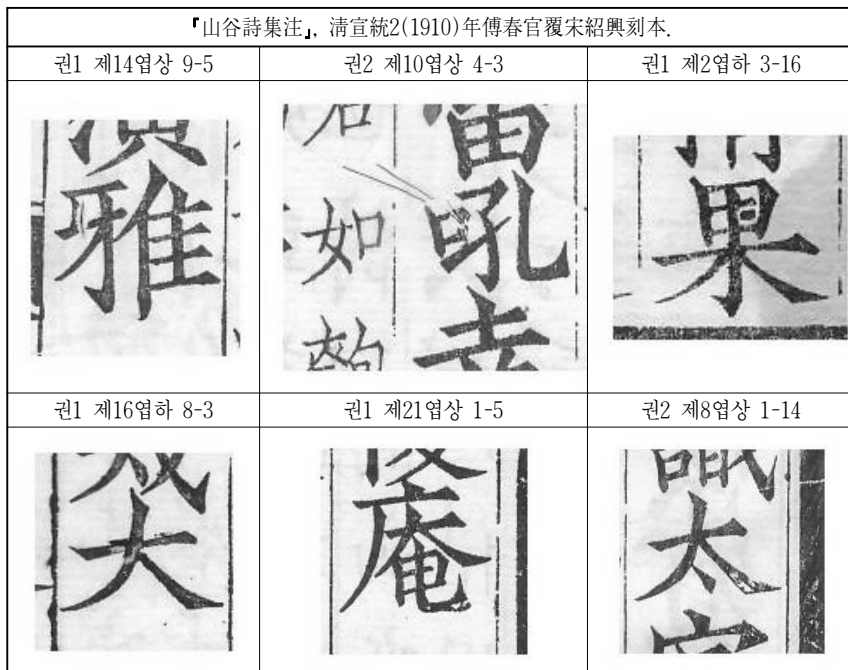 『山谷詩集注』, 淸宣統2(1910)年傅春官覆宋紹興刻本.
권1 제14엽상 9-5
권2 제10엽상 4-3
권1 제2엽하 3-16
雅
如
吼
果
권1 제16엽하 8-3
권1 제21엽상 1-5
권2 제8엽상 1-14
大
庵
太